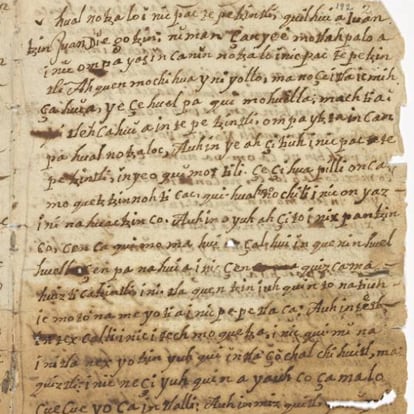 hual notza lo c inicpac tepetzintli, quilhui a Iuan
tzin Juan Die gotzin: niman ca nyee motlah palo a
inic ompa yaz in canin notzalo inicpac tepetzin
tli Ah quen mochihua yni yollo, ma noçe itla ic mih
ça huia, ye çe hual pa qui mohuella mach tia i
tleh cahui a in te pe tzintli. ompa ytzta in can
pa hual no tza loc, Auh in ye ah çi tiuh inic pac te
pe tzintli, in yeo qui mot tili. Çe çi hua pilli onca
mo quetzinnoh ti cac, qui hual nochili inic on yaz
in i na huac tzin co. Auh in o yuh ah çi to i nix pan tzin
co. cen ca qui mo ma hui çal hui in que nin huel
huella çen pa na hui a inic Cen quizca ma
huiz ti ca tzintli. ini. tla quen tzin yuh quin to na tiuh
ic mo to na me yo ti a inic pe pe tla ca. Auh in tetl
in tex calli inic i tech mo que tza, inic qui mi na
in i tla nex yo tzin yuh qui in tla ço chal chi huitl, ma
quiztli inic ne çi yuh qui n a yauh co ça ma lo
cue cue yo ca in tlalli Auh in miz quitl